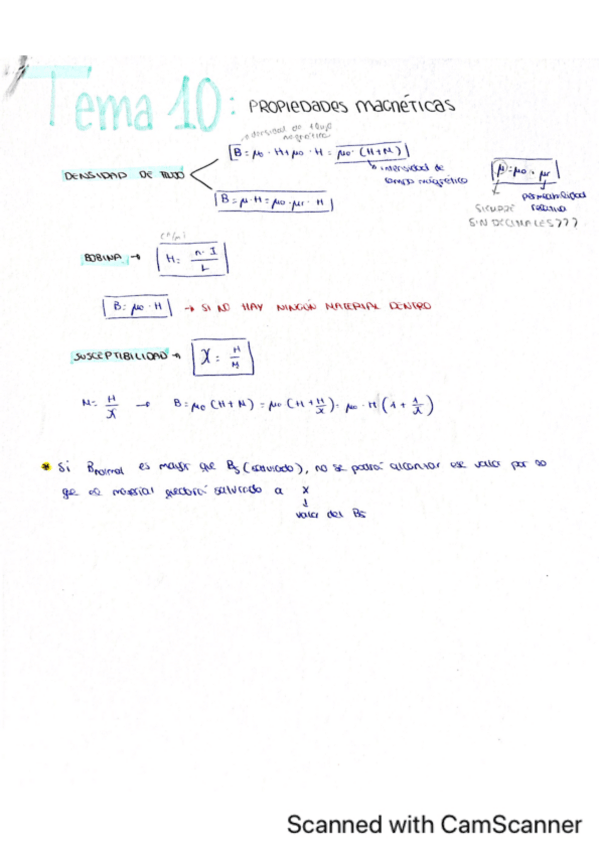 Tema 10: PROPIEDADES MAGNÉTICAS
densidad de flujo magnético
B = μo · H + μo · H = μo · (H+M)
intensidad de campo magnético
μ = μo · μr
permeabilidad relativa
SIEMPRE SIN DECIMALES???
DENSIDAD DE FLUJO
B = μ · H = μo · μr · H
BOBINA → H = n · I / L
B = μo · H → SI NO HAY NINGÚN MATERIAL DENTRO
SUSCEPTIBILIDAD → X = H / M
M = H / X → B = μo (H+M) = μo (H + H/X) = μo · H (1 + 1/X)
* Si Bnormal es mayor que Bs (saturado), no se podrá alcanzar ese valor por
que el material quedará saturado a X
↓
valor del Bs
Scanned with CamScanner